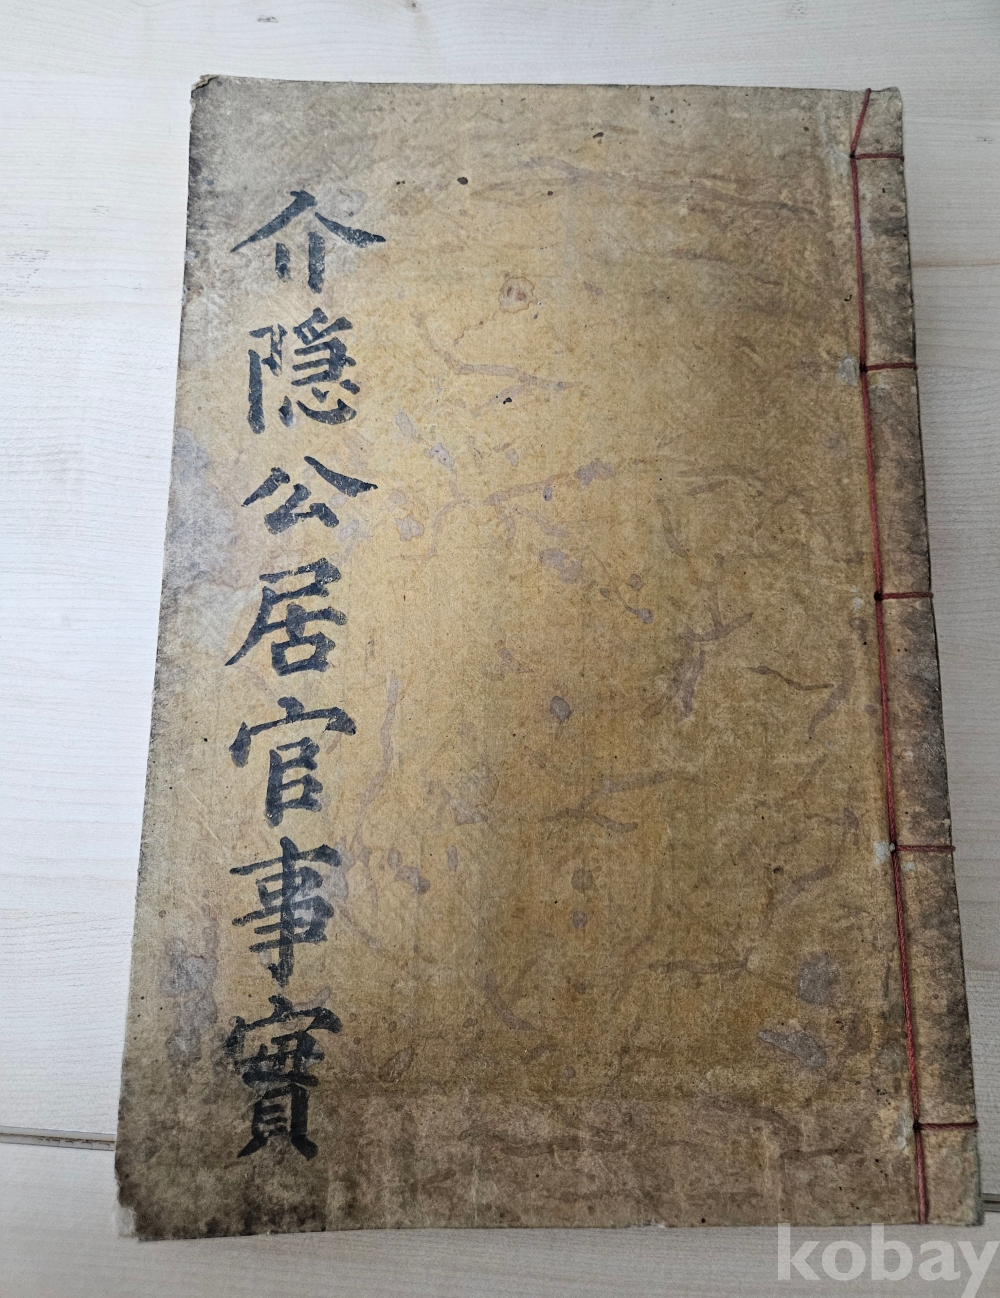 介隱公居官事實
kobay